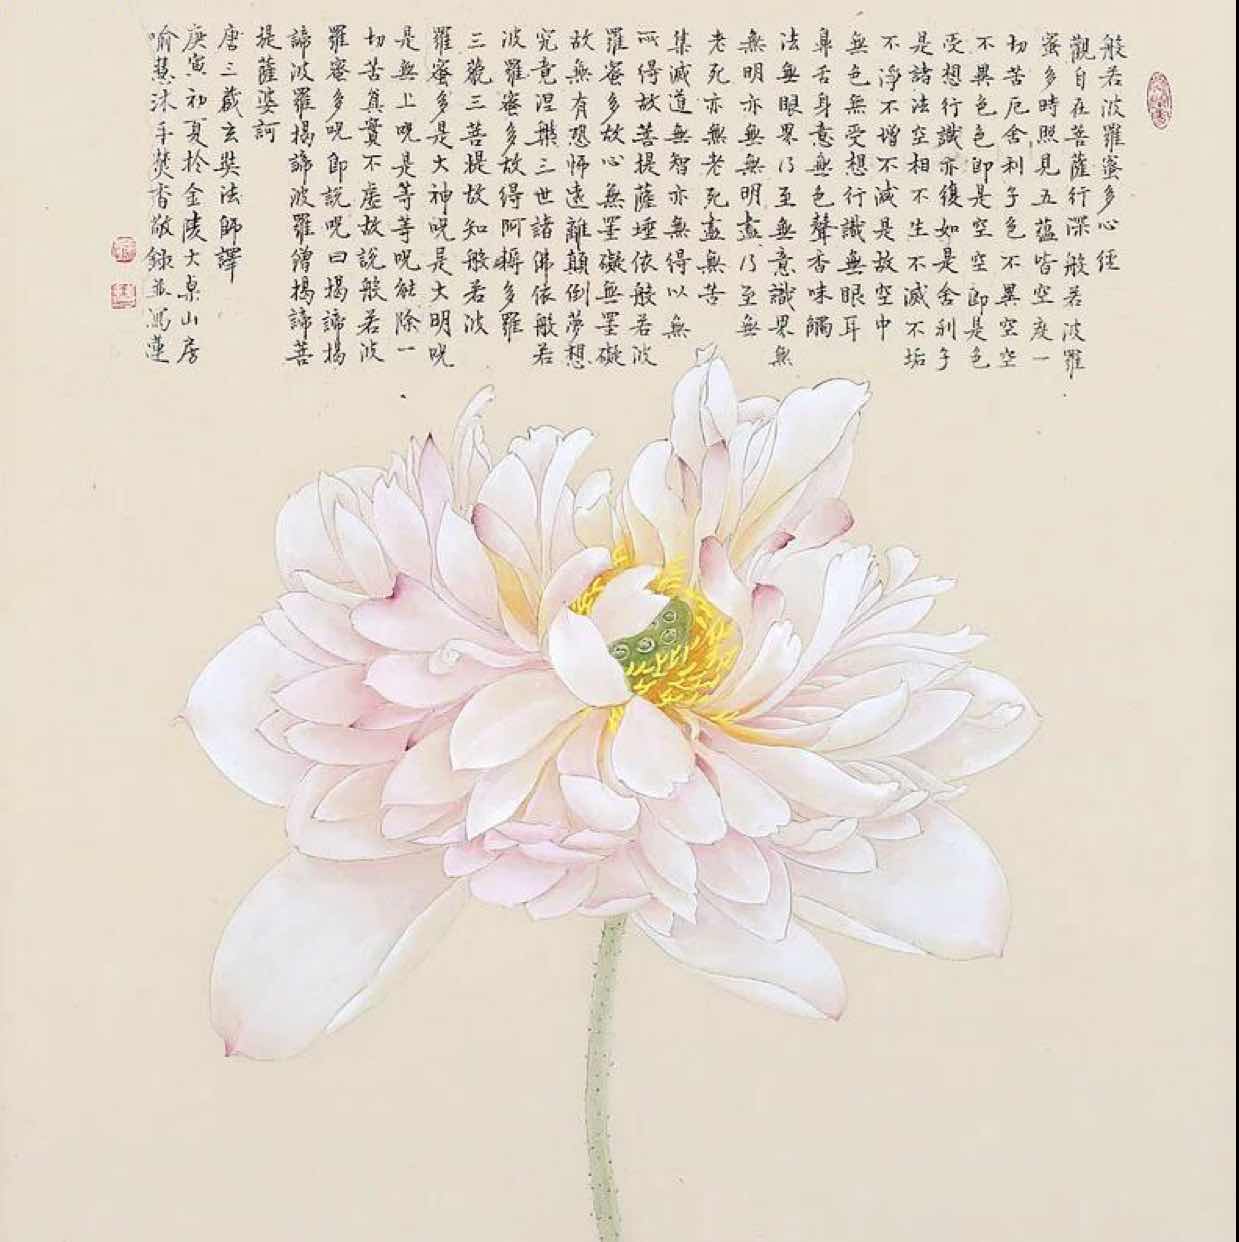 般若波羅蜜多心經
觀自在菩薩行深般若波羅
蜜多時照見五蘊皆空度一
切苦厄舍利子色不異空空
不異色色即是空空即是色
受想行識亦復如是舍利子
是諸法空相不生不滅不垢
不淨不增不減是故空中
無色無受想行識無眼耳
鼻舌身意無色聲香味觸
法無眼界乃至無意識界無
無明亦無無明盡乃至無
老死亦無老死盡無苦
集滅道無智亦無得以無
所得故菩提薩埵依般若波
羅蜜多故心無罣礙無罣礙
故無有恐怖遠離顛倒夢想
究竟涅槃三世諸佛依般若
波羅蜜多故得阿耨多羅
三藐三菩提故知般若波
羅蜜多是大神呪是大明呪
是無上呪是等等呪能除一
切苦真實不虛故說般若波
羅蜜多呪即說呪曰揭諦揭
諦波羅揭諦波羅僧揭諦菩
提薩婆訶
唐三藏玄奘法師譯
庚寅初夏於金陵大泉山房
喻慧沐手焚香敬錄並寫蓮